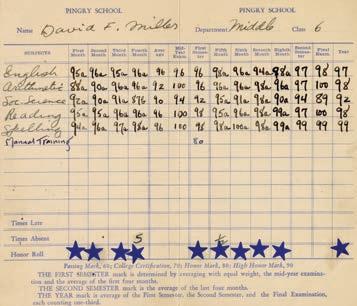 PINGRY SCHOOL PINGRY SCHOOL
Name David F. Miller Department Middle Class 6
SUBJECTS First Month Second Month Third Month Fourth Month Average Mid-Year Exam. First Semester Fifth Month Sixth Month Seventh Month Eighth Month Second Semester Final Exam. Year
English 95a 96a 95a 96a 96 96 96 98a 96a 94a 88a 97 98 97
Arithmetic 88a 90a 96a 96a 92 100 96 98a 96a 98a 97 100 98
Soc. Science 92a 90a 91a 87b 90 94 92 95a 91a 98a 90a 94 89 92
Reading 95a 95a 96a 96a 96 100 98 95a 99a 98a 97 100 98
Spelling 94a 96a 97a 98a 96 98 98a 100a 98a 99a 99 99 99
Manual Training 80
Times Late
Times Absent 5
Honor Roll
Passing Mark, 60; College Certification, 70; Honor Mark, 80; High Honor Mark, 90
THE FIRST SEMESTER mark is determined by averaging with equal weight, the mid-year examination and the average of the first four months.
THE SECOND SEMESTER mark is the average of the last four months.
THE YEAR mark is average of the First Semester, the Second Semester, and the Final Examination, each counting one-third.